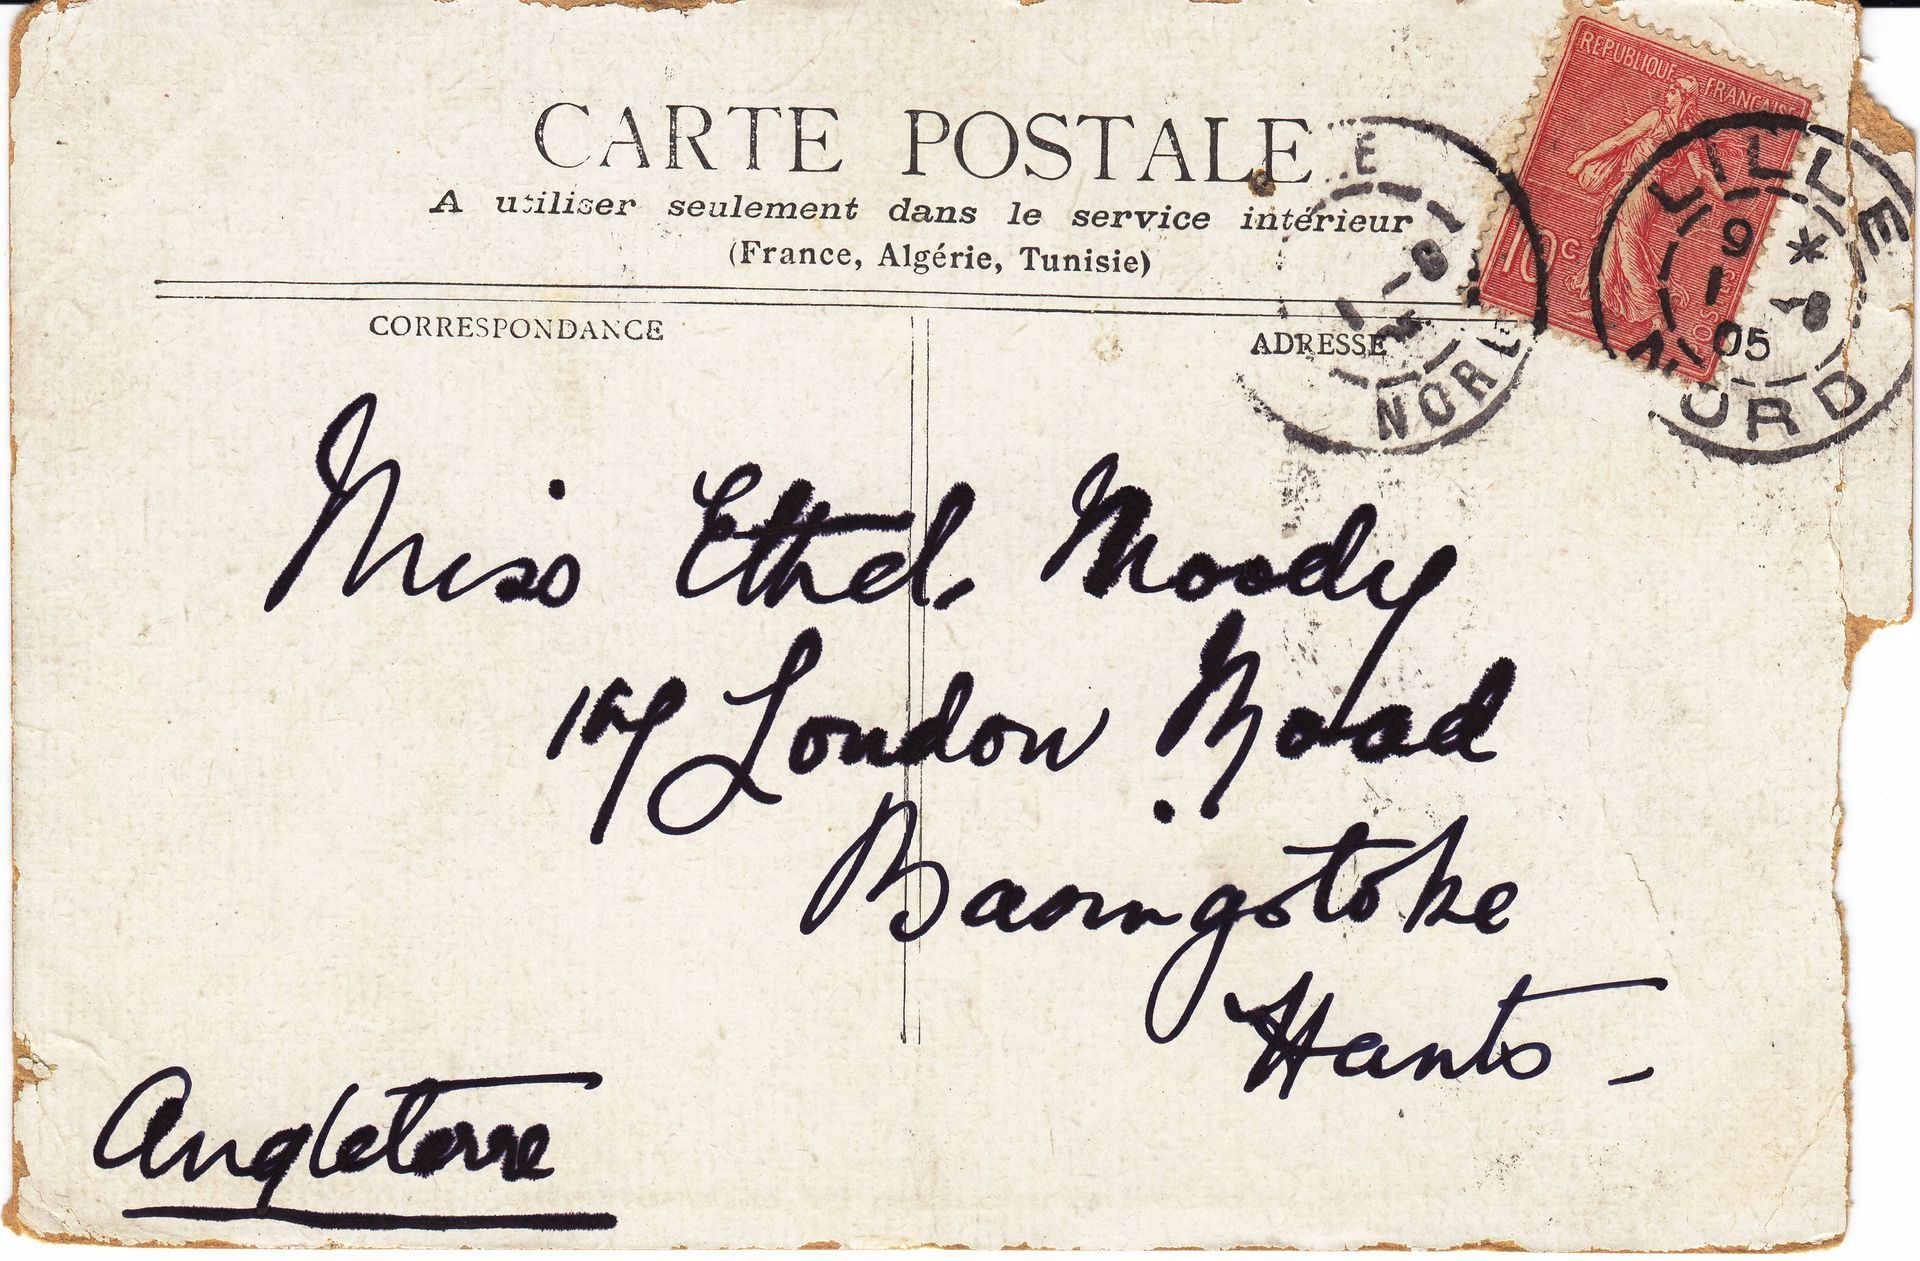 CARTE POSTALE
A utiliser seulement dans le service intérieur
(France, Algérie, Tunisie)
CORRESPONDANCE
ADRESSE
REPUBLIQUE FRANÇAISE
10 c
LILLE
9
05
NORD
NORD
Miss Ethel Moody
London Road
Basingstoke
Hants -
Angleterre